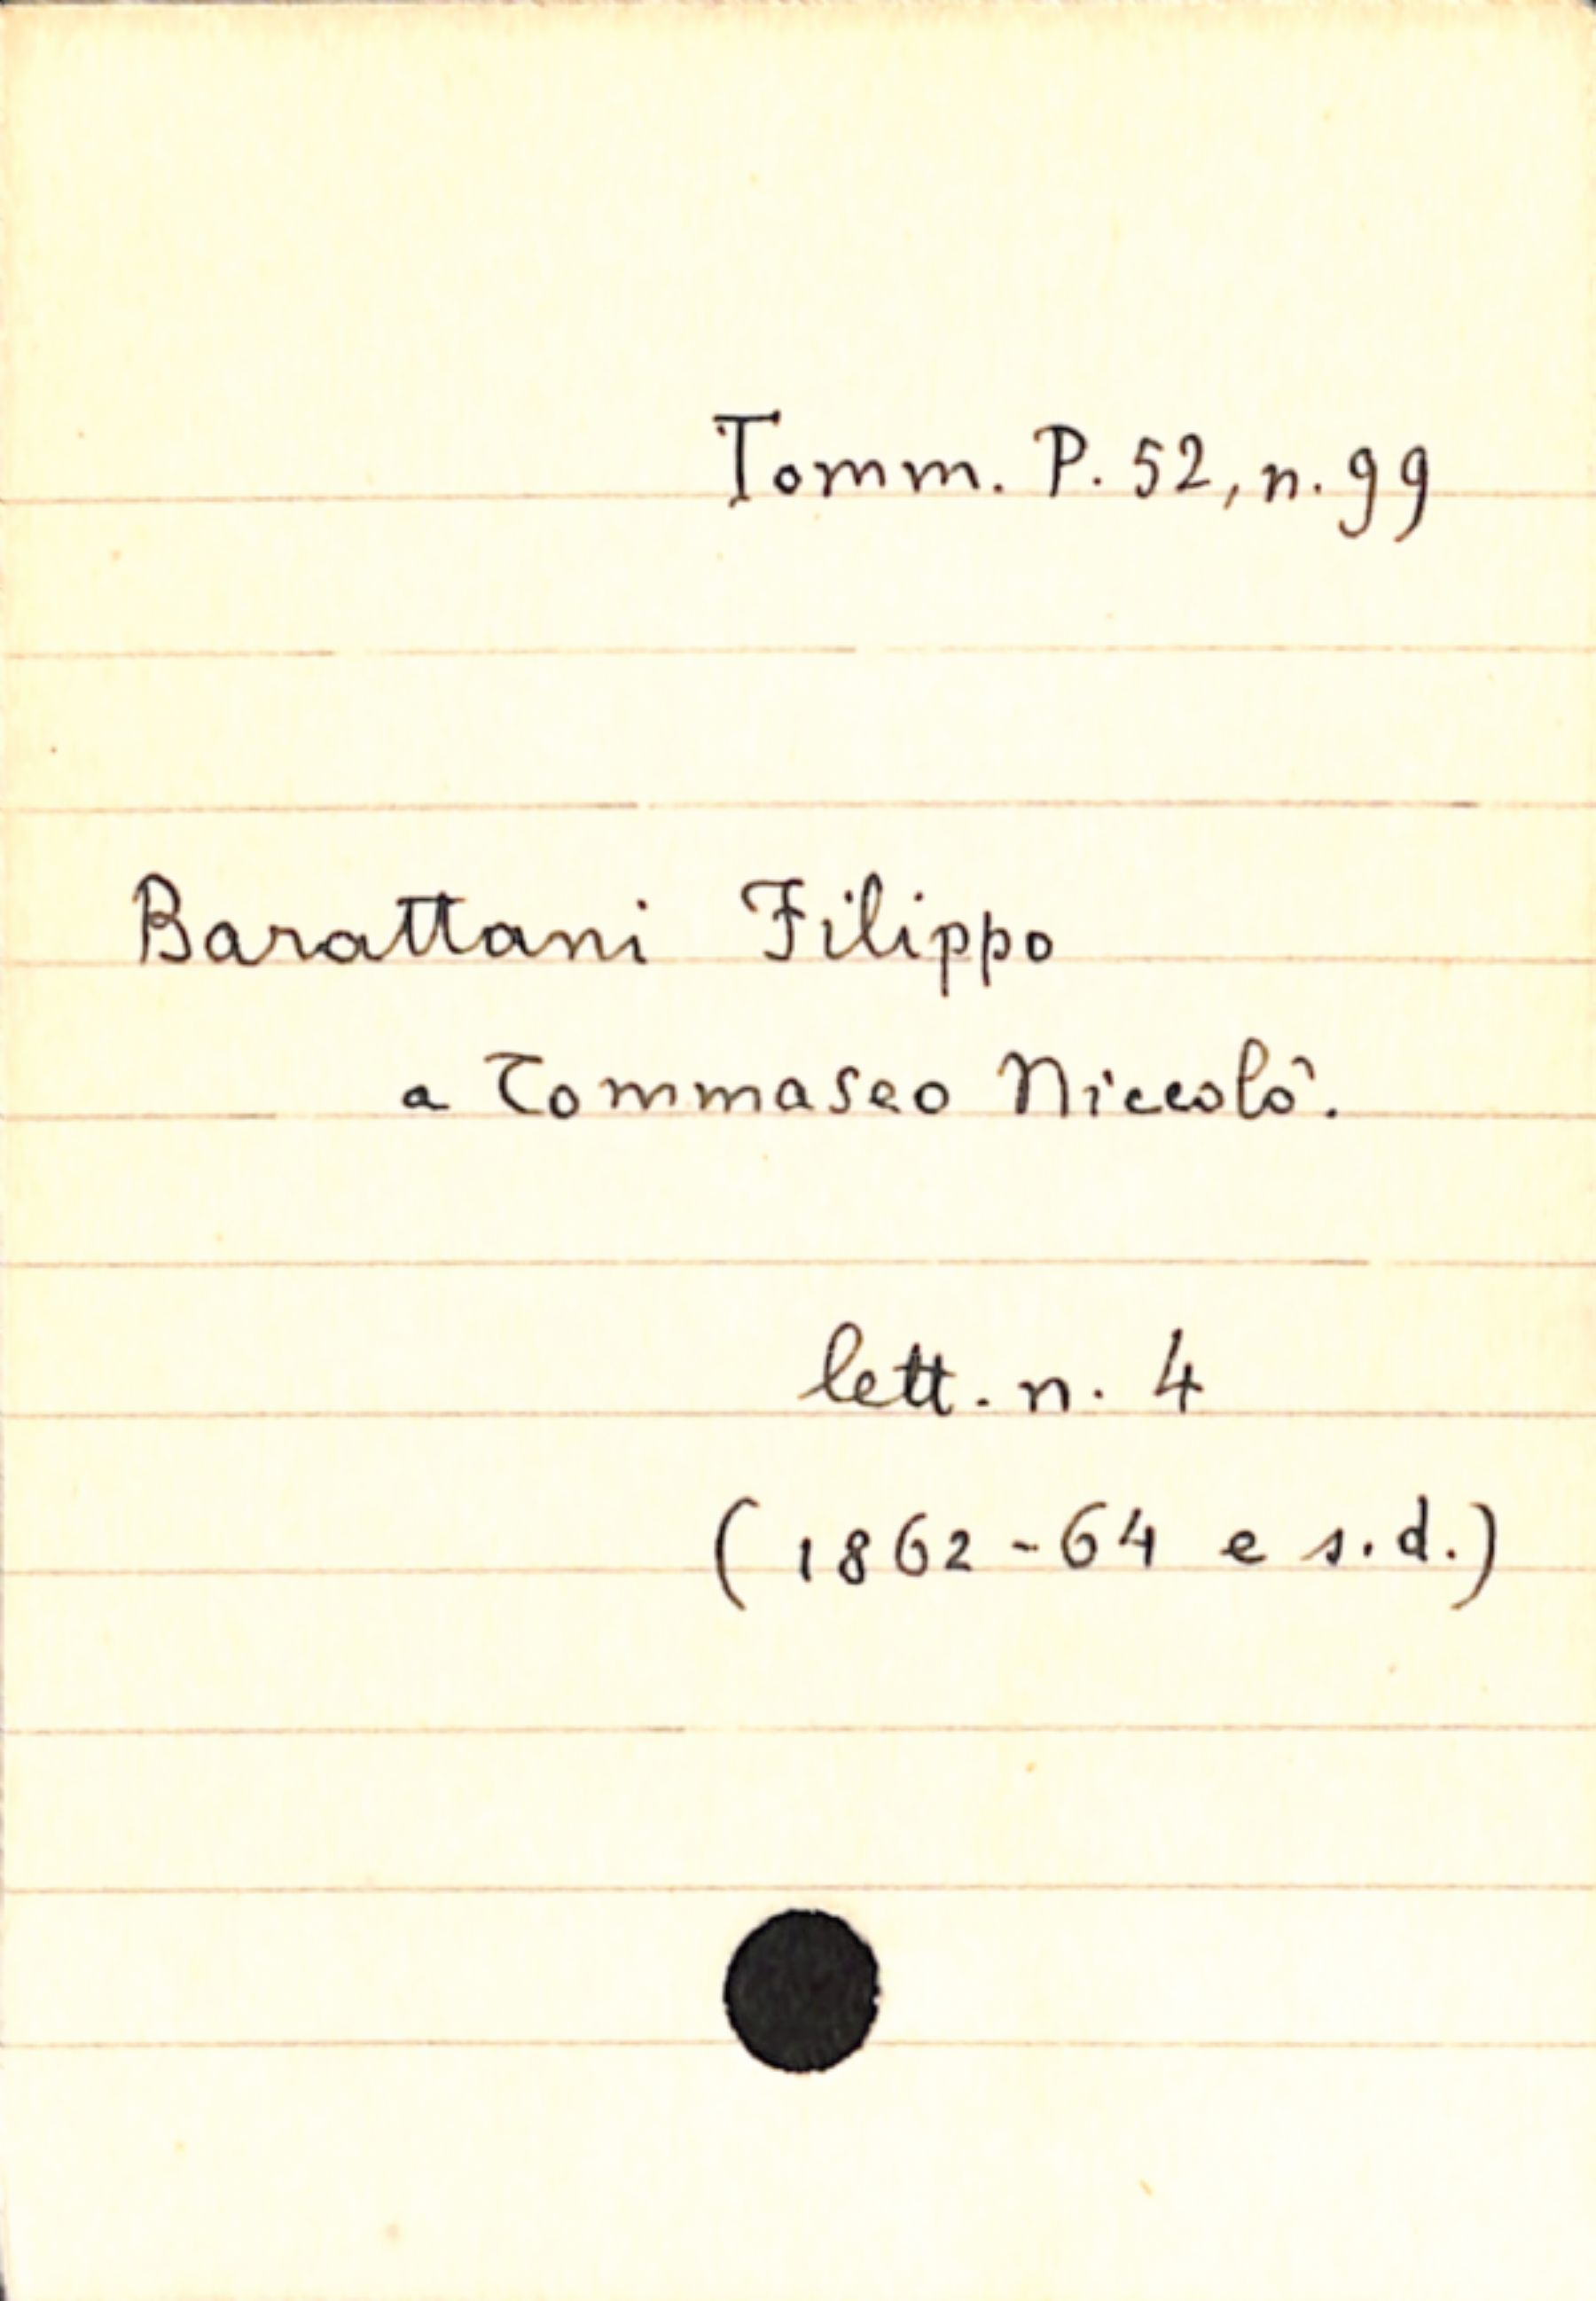 Tomm. P. 52, n. 99
Barattani Filippo
a Tommaseo Niccolò.
lett. n. 4
(1862-64 e s.d.)